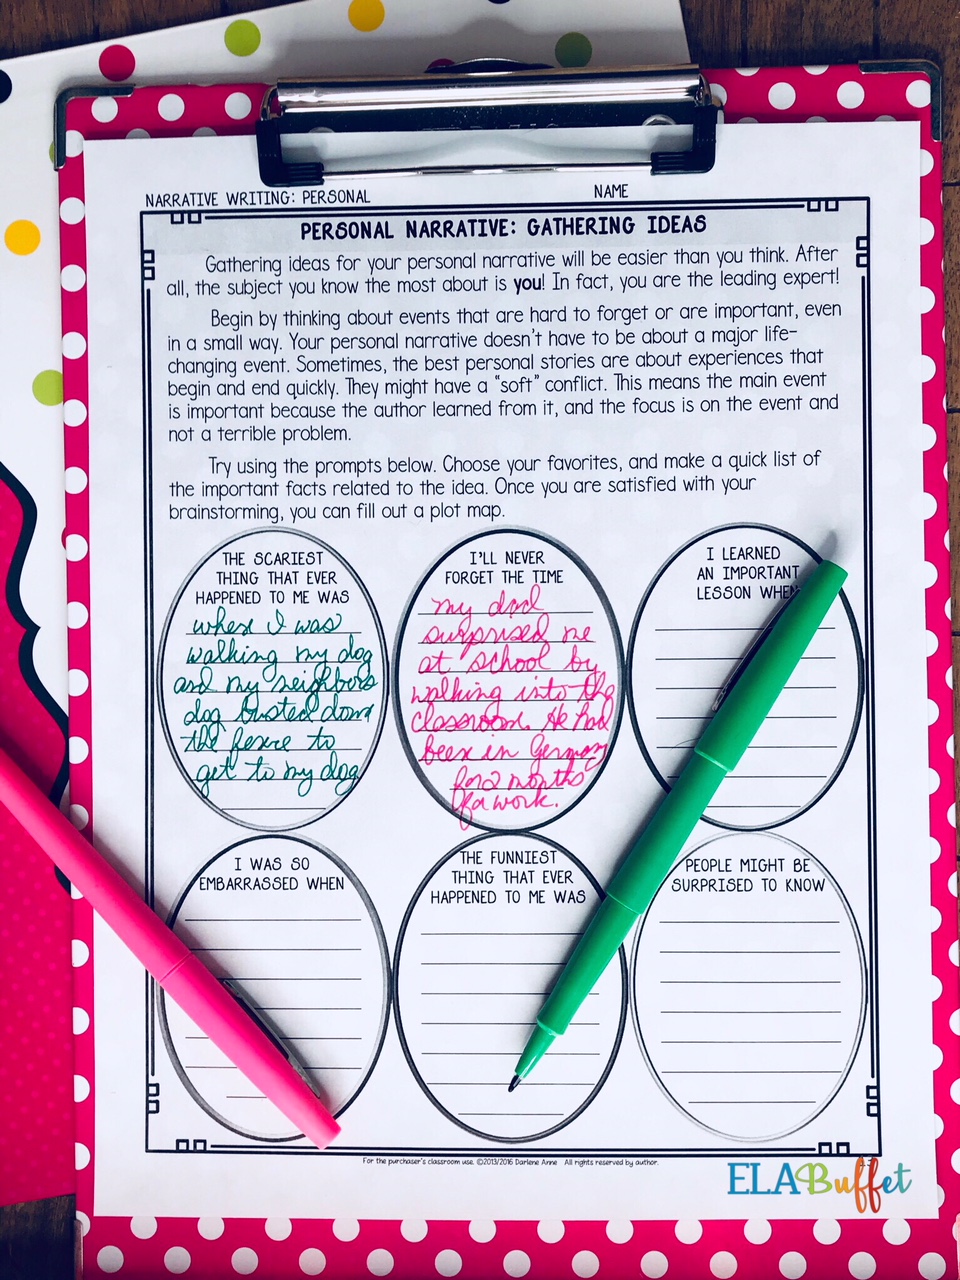 NARRATIVE WRITING: PERSONAL
NAME
PERSONAL NARRATIVE: GATHERING IDEAS
Gathering ideas for your personal narrative will be easier than you think. After
all, the subject you know the most about is you! In fact, you are the leading expert!
Begin by thinking about events that are hard to forget or are important, even
in a small way. Your personal narrative doesn't have to be about a major life-
changing event. Sometimes, the best personal stories are about experiences that
begin and end quickly. They might have a "soft" conflict. This means the main event
is important because the author learned from it, and the focus is on the event and
not a terrible problem.
Try using the prompts below. Choose your favorites, and make a quick list of
the important facts related to the idea. Once you are satisfied with your
brainstorming, you can fill out a plot map.
THE SCARIEST
THING THAT EVER
HAPPENED TO ME WAS
when I was
walking my dog
and my neighbors
dog busted down
the fence to
get to my dog
I'LL NEVER
FORGET THE TIME
my dad
surprised me
at school by
walking into the
classroom. He had
been in Germany
for 2 months
for work.
I LEARNED
AN IMPORTANT
LESSON WHEN
I WAS SO
EMBARRASSED WHEN
THE FUNNIEST
THING THAT EVER
HAPPENED TO ME WAS
PEOPLE MIGHT BE
SURPRISED TO KNOW
For the purchaser's classroom use. ©2013/2016 Darlene Anne All rights reserved by author.
ELABuffet